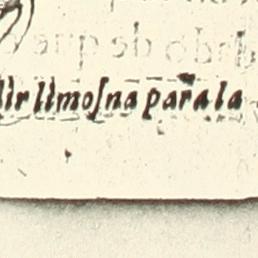 dir limoſna para la